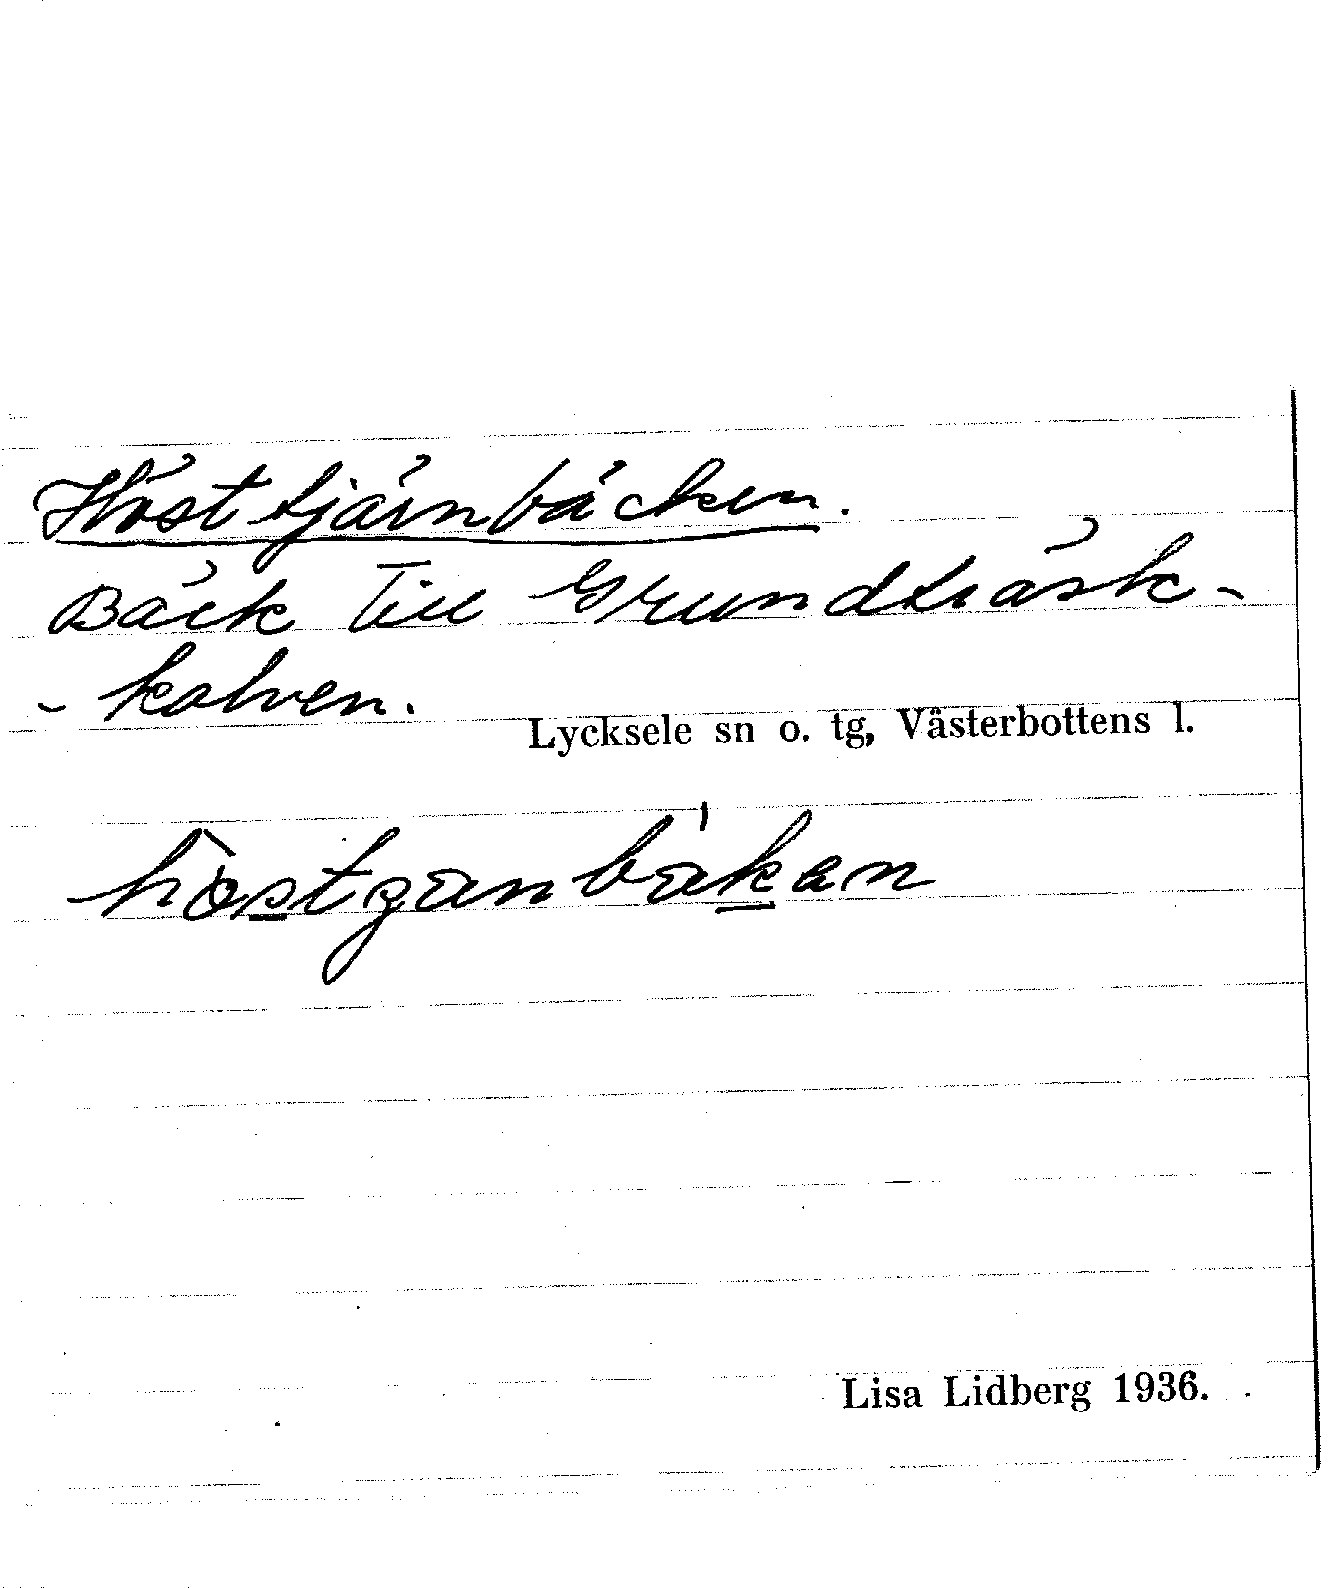 Hösttjärnbäcken.
Bäck till Grundträsk-
- kolven.
Lycksele sn o. tg, Västerbottens l.
Lisa Lidberg 1936.